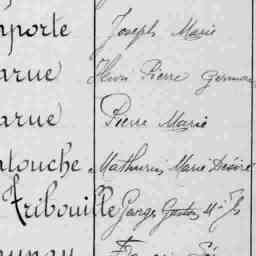 porte Joseph Marie
arue Henri Pierre Germain
arue Pierre Marie
atouche Mathurin Marie Désiré
Tribouille Georges Gaston M-J
aunay